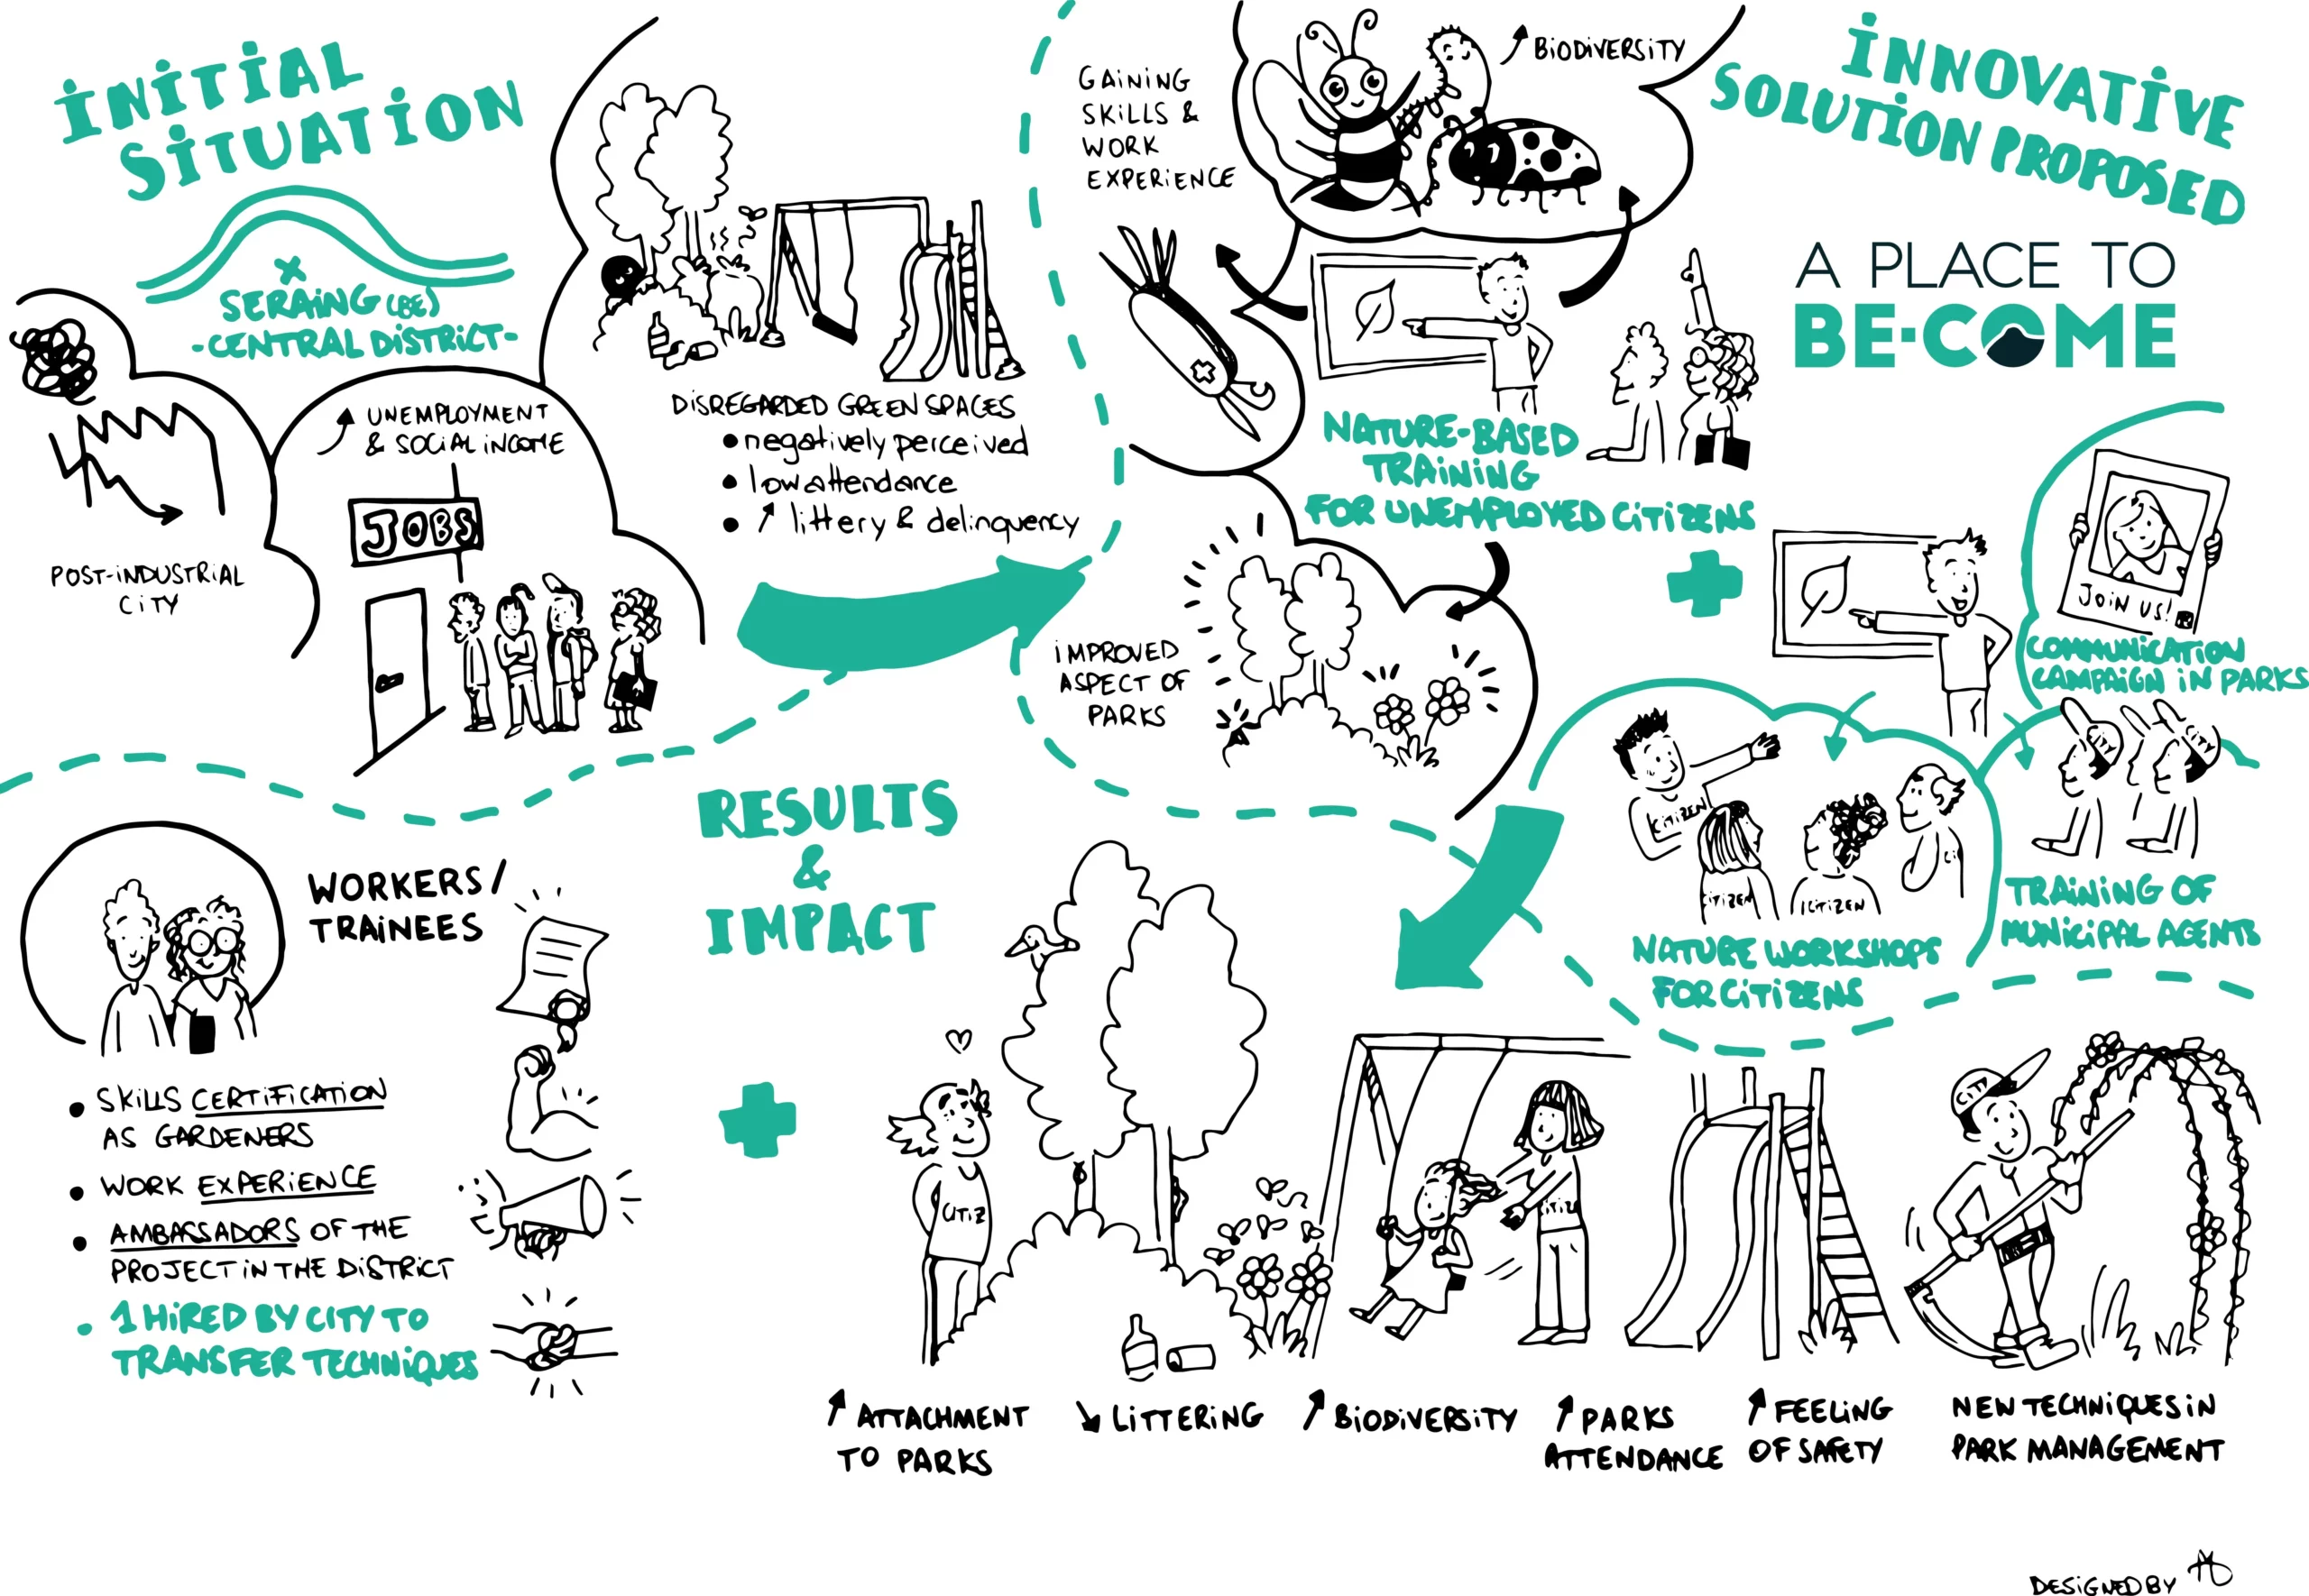 INITIAL
SITUATION
SERAING (BE)
-CENTRAL DISTRICT-
POST-INDUSTRIAL
CITY
UNEMPLOYMENT
& SOCIAL INCOME
JOBS
DISREGARDED GREEN SPACES
• negatively perceived
• low attendance
• littery & delinquency
GAINING
SKILLS &
WORK
EXPERIENCE
BIODIVERSITY
INNOVATIVE
SOLUTION PROPOSED
A PLACE TO
BE·COME
NATURE-BASED
TRAINING
FOR UNEMPLOYED CITIZENS
IMPROVED
ASPECT OF
PARKS
JOIN US!
COMMUNICATION
CAMPAIGN IN PARKS
CITIZEN
CITIZEN
CITIZEN
CI
NATURE WORKSHOPS
FOR CITIZENS
CITY
CITY
TRAINING OF
MUNICIPAL AGENTS
RESULTS
&
IMPACT
WORKERS/
TRAINEES
• SKILLS CERTIFICATION
AS GARDENERS
• WORK EXPERIENCE
• AMBASSADORS OF THE
PROJECT IN THE DISTRICT
- 1 HIRED BY CITY TO
TRANSFER TECHNIQUES
CITIZ
CITIZ
CITY
ATTACHMENT
TO PARKS
LITTERING
BIODIVERSITY
PARKS
ATTENDANCE
FEELING
OF SAFETY
NEW TECHNIQUES IN
PARK MANAGEMENT
DESIGNED BY